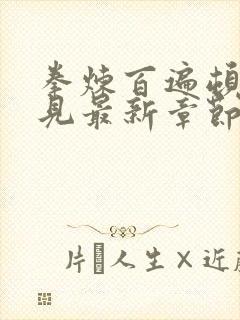 拳煉百遍
見最新章節
片 人生×近